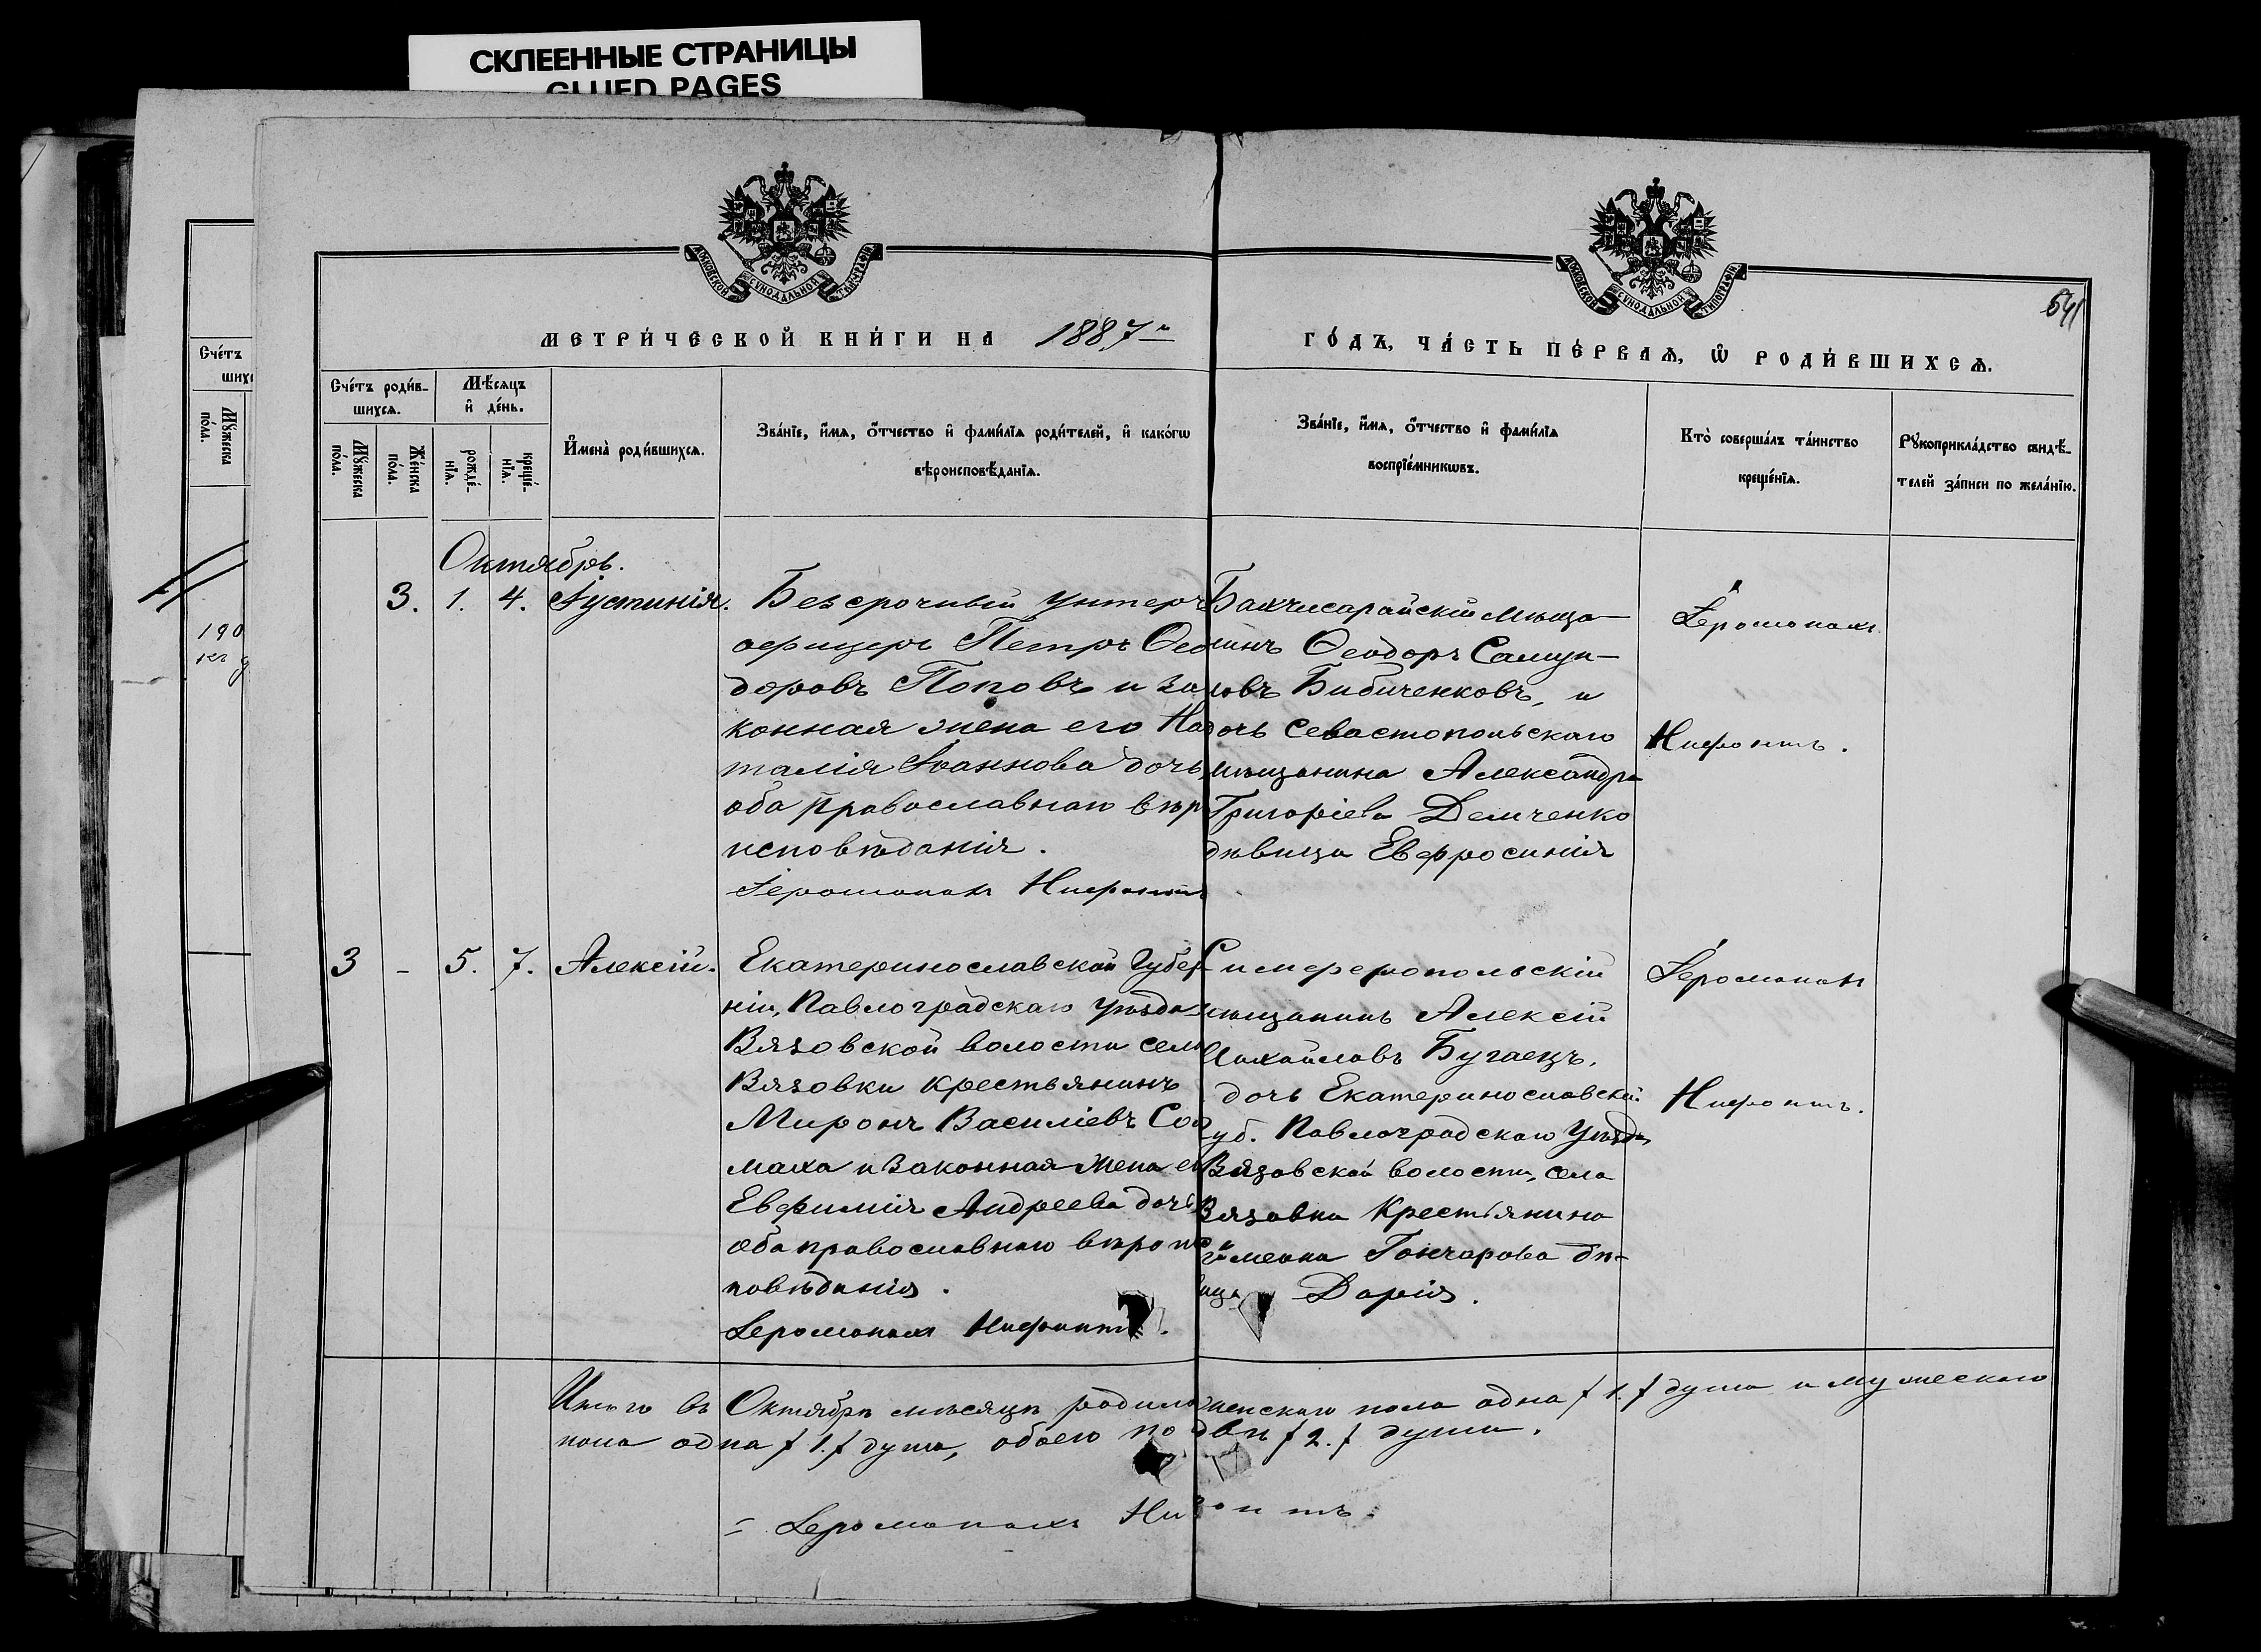 СКЛЕЕННЫЕ СТРАНИЦЫ
GLUED PAGES
МОСКОВСКОЙ СѴНОДАЛЬНОЙ ТИПОГРАФІИ
МОСКОВСКОЙ СѴНОДАЛЬНОЙ ТИПОГРАФІИ
МЕТРИ́ЧЕСКОЙ КНИ́ГИ НА 1887 г
ГО́ДЪ, ЧА́СТЬ ПЕ́РВАѦ, Ѡ҆ РОДИ́ВШИХСѦ.
541
Сче́тъ
Мꙋ́жеска
по́ла.
190
Сче́тъ роди́в-
шихсѧ.
Мꙋ́жеска
по́ла.
Же́нска
по́ла.
Мѣ́сѧцъ
и҆ де́нь.
рожде́-
нїѧ.
креще́-
нїѧ.
И҆мена̀ роди́вшихсѧ.
Зва́нїе, и҆́мѧ, ѻ҆́тчество и҆ фами́лїѧ роди́телей, и҆ како́гѡ
вѣроисповѣ́данїѧ.
Зва́нїе, и҆́мѧ, ѻ҆́тчество и҆ фами́лїѧ
воспрїе́мникѡвъ.
Кто̀ соверша́лъ та́инство
креще́нїѧ.
Рꙋкоприкла́дство свидѣ́-
телей за́писи по жела́нїю.
Октябрь.
3. 1. 4. Іустинія.
Безсрочный унтеръ
офицеръ Петръ Ѳео
доровъ Поповъ и за
конная жена его На
талія Іоаннова дочь
оба православнаго вѣр
исповѣданія.
Іеромонахъ Нифонтъ
Бахчисарайскій мѣща
нинъ Ѳеодоръ Самуи-
ловъ Бибиченковъ, и
дочь Севастопольскаго
мѣщанина Александра
Григоріева Демченко
дѣвица Евфросинія
Іеромонахъ
Нифонтъ.
3 - 5. 7. Алексій.
Екатеринославской Губер-
ніи, Павлоградскаго уѣзда
Вязовской волости села
Вязовки крестьянинъ
Миронъ Василіевъ Сол
маха и законная жена е
Евфимія Андреева дочь
оба православнаго вѣроис
повѣданія.
Іеромонахъ Нифонтъ.
Симферопольскій
мѣщанинъ Алексій
Михайловъ Бугаецъ,
дочь Екатеринославской
Губ. Павлоградскаго Уѣзда,
Вязовской волости, села
Вязовки Крестьянина
Гончарова дѣ-
вица Дарія.
Іеромонахъ
Нифонтъ.
Итого въ Октябрѣ мѣсяцѣ родило женскаго пола одна /1./ душа и мужескаго
пола одна /1./ душа, обоего по двѣ /2./ души.
= Іеромонахъ Нифонтъ.